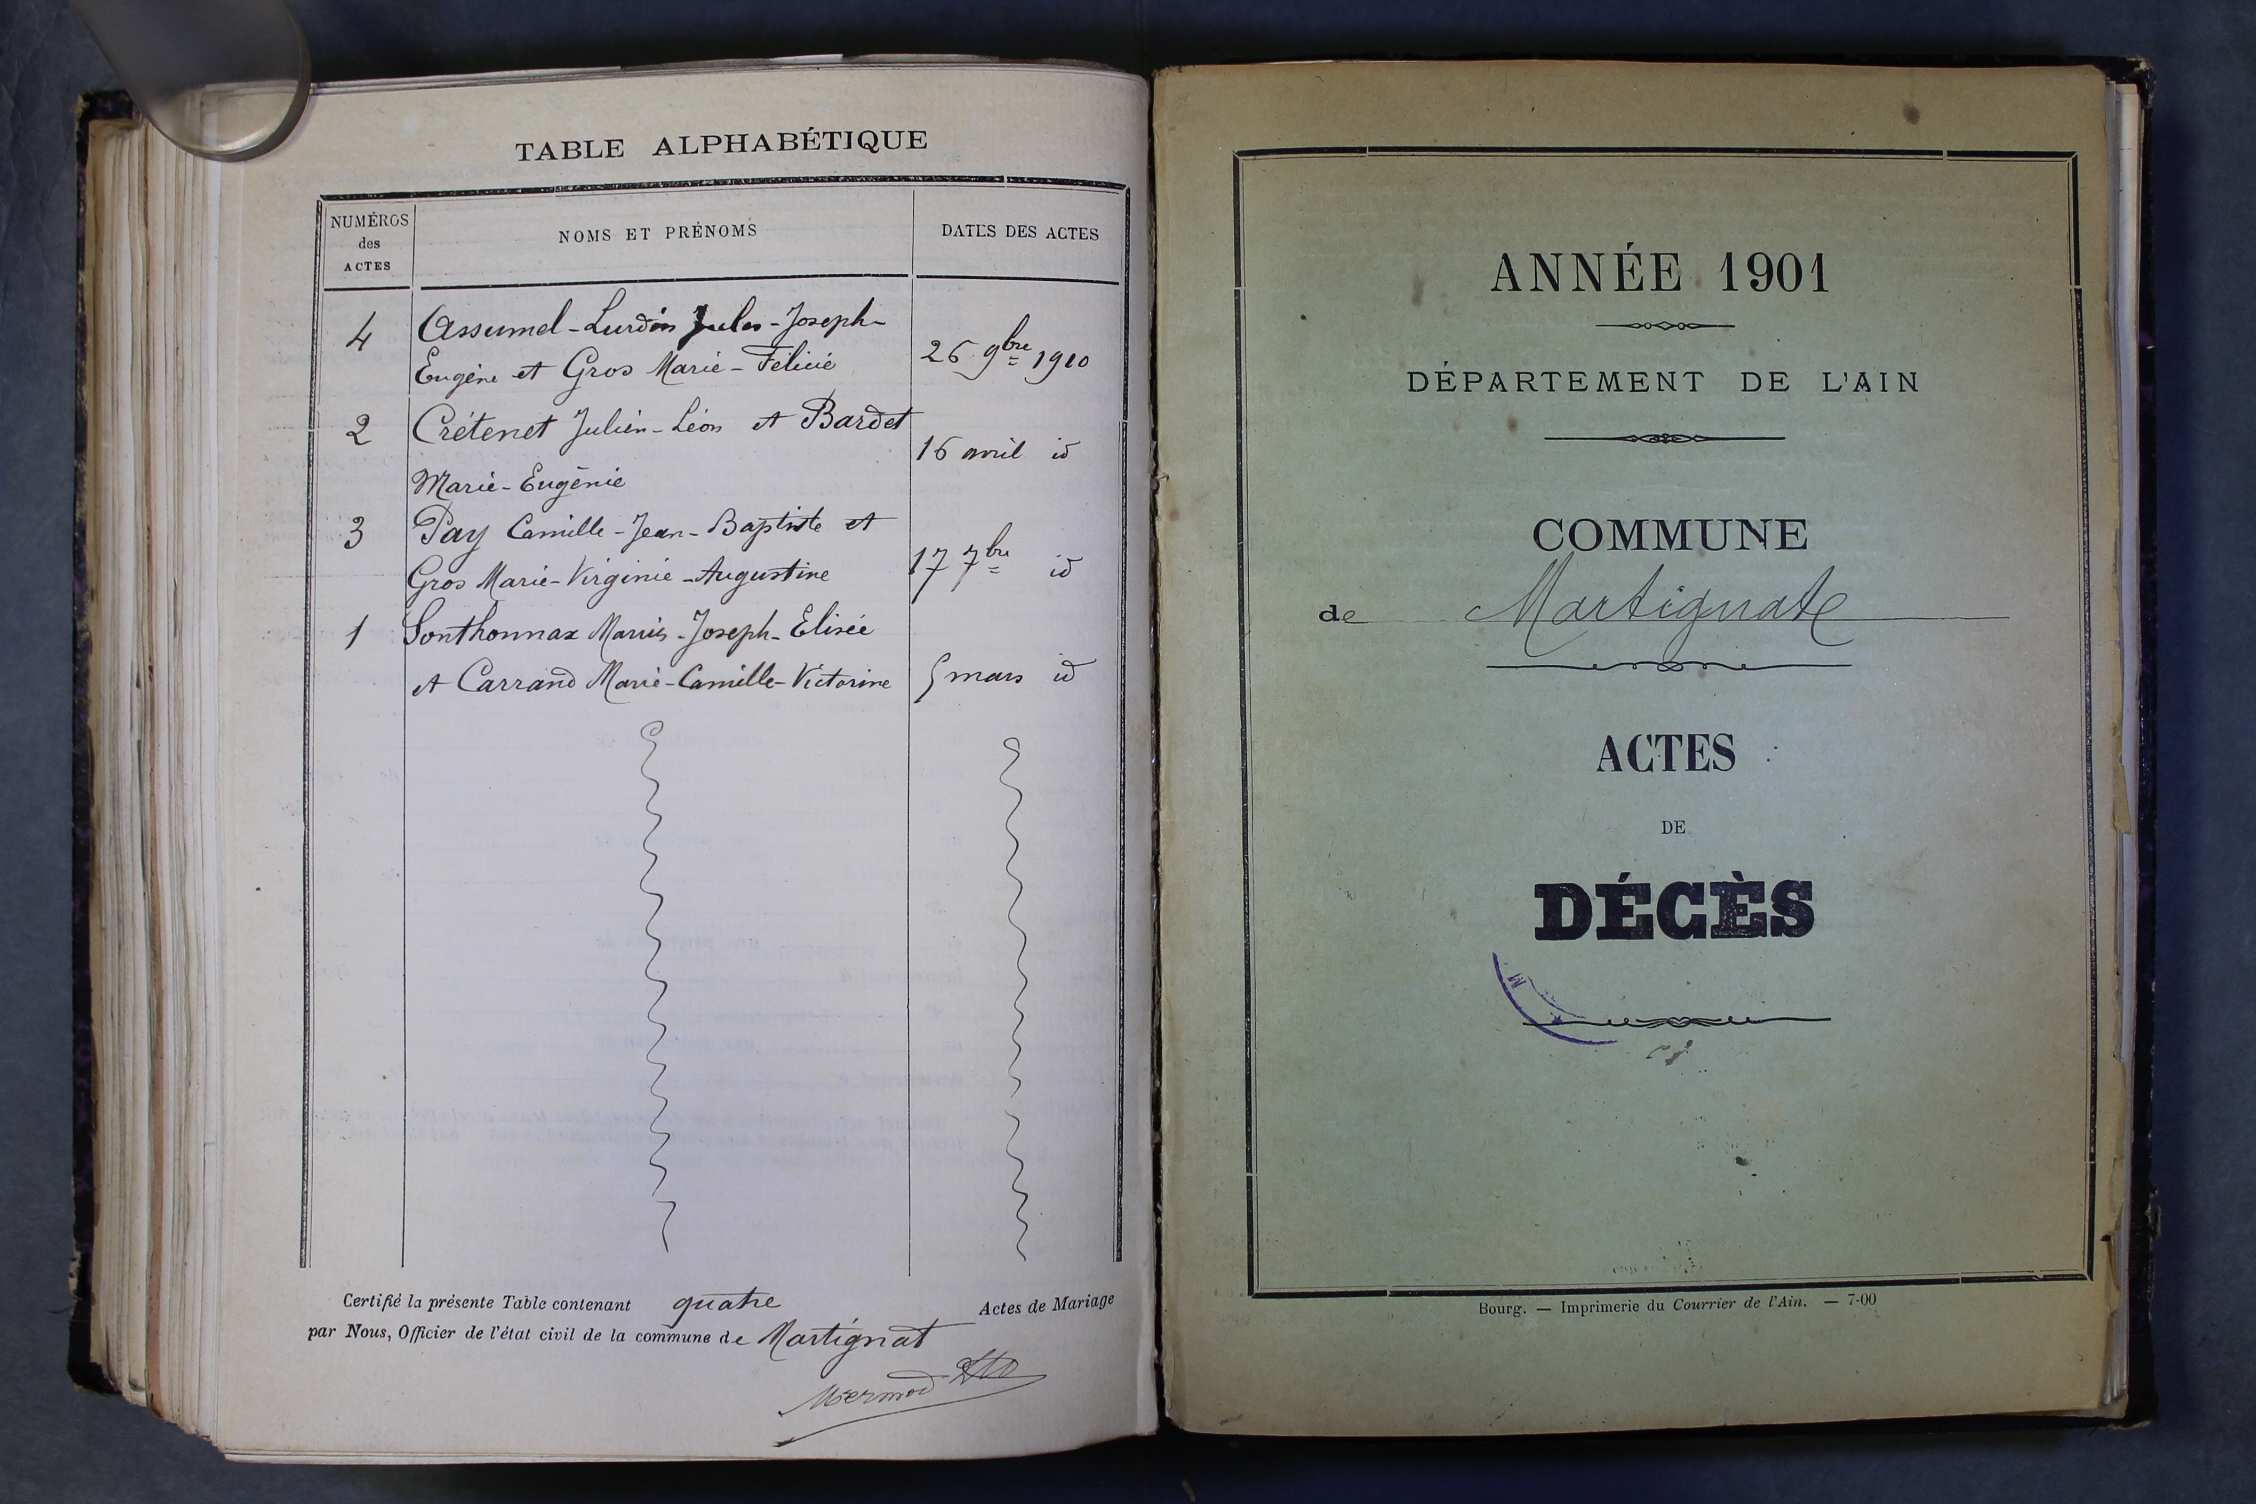 TABLE ALPHABÉTIQUE
NUMÉROS des ACTES
NOMS ET PRÉNOMS
DATES DES ACTES
4
Assumel-Lurdin Jules-Joseph-
Eugène et Gros Marie-Félicie
26 9bre 1910
2
Crétenet Julien-Léon et Bardet
16 avril id
Marie-Eugénie
3
Pay Camille-Jean-Baptiste et
17 7bre id
Gros Marie-Virginie-Augustine
1
Sonthonnax Marius-Joseph-Elisée
et Carrand Marie-Camille-Victorine
5 mars id
Certifié la présente Table contenant quatre Actes de Mariage
par Nous, Officier de l'état civil de la commune de Martignat
Mermod
ANNÉE 1901
DÉPARTEMENT DE L'AIN
COMMUNE
de Martignat
ACTES
DE
DÉCÈS
M
Bourg. — Imprimerie du Courrier de l'Ain. — 7-00